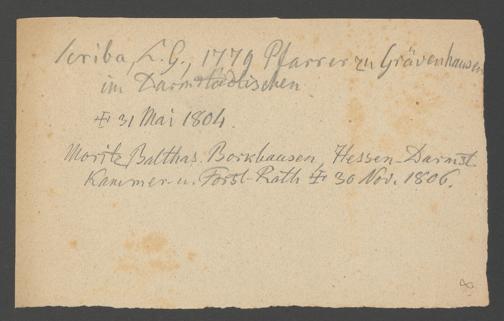 Scriba, L. G., 1779 Pfarrer zu Grävenhausen
im Darmstädtischen
✠ 31 Mai 1804.
Moritz Balthas. Borkhausen, Hessen-Darmst.
Kammer- u. Forst-Rath ✠ 30 Nov. 1806.